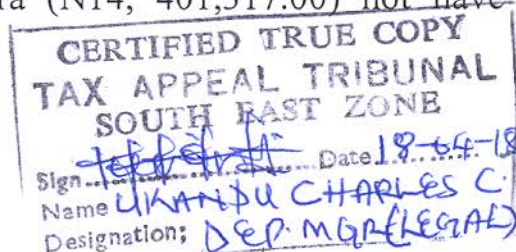 (N14, 401,517.00) not have
CERTIFIED TRUE COPY
TAX APPEAL TRIBUNAL
SOUTH EAST ZONE
Sign............ Date 18-04-18
Name UKANDU CHARLES C.
Designation; DEP. MGR (LEGAL)